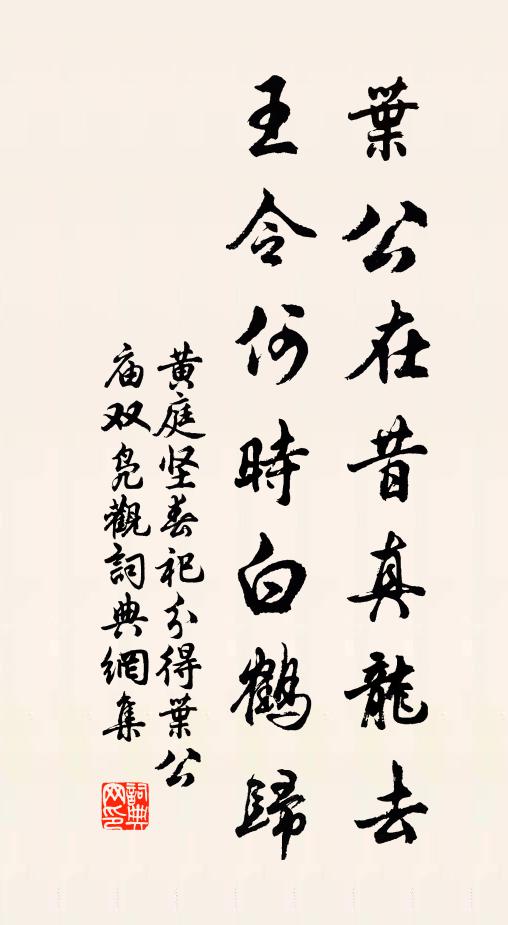 葉公在昔真龍去
王令何時白鶴歸
黄庭坚春祀分得葉公
庙双凫觀詞典網集
詞典网印